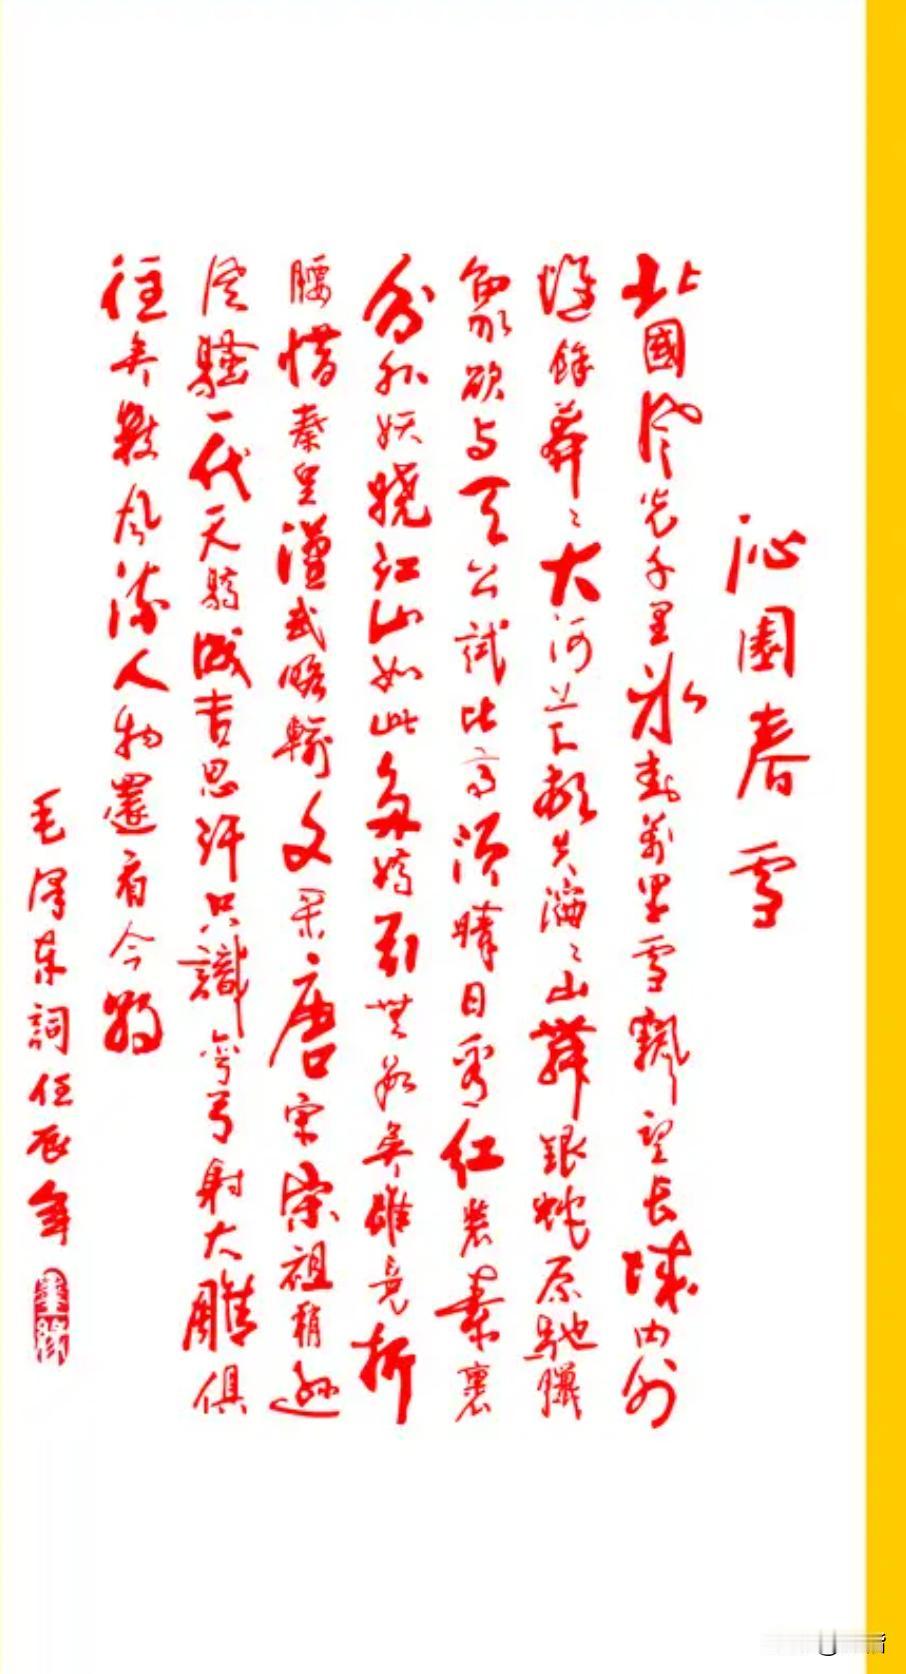 沁園春雪
北國风光千里冰封萬里雪飄望长城内外
惟餘莽々大河上下頓失滔々山舞銀蛇原馳臘
象欲与天公試比高須晴日看红裝素裹
分外妖娆江山如此多娇引無数英雄竞折
腰惜秦皇漢武略輸文采唐宋宗祖稍逊
风騷一代天骄成吉思汗只識彎弓射大雕俱
往矣數风流人物還看今朝
毛泽东詞任辰年
墨缘